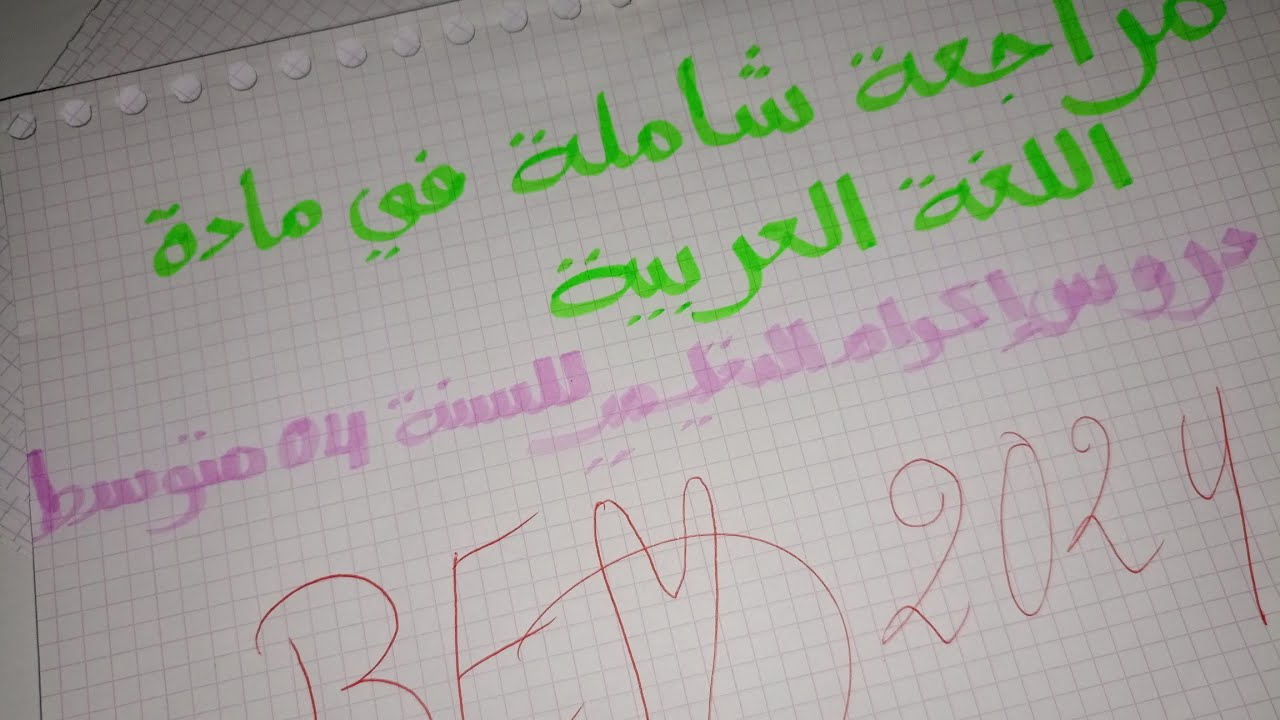 مراجعة شاملة في مادة
اللغة العربية
دروس إكرام التعليمي للسنة 04 متوسط
BEM 2024